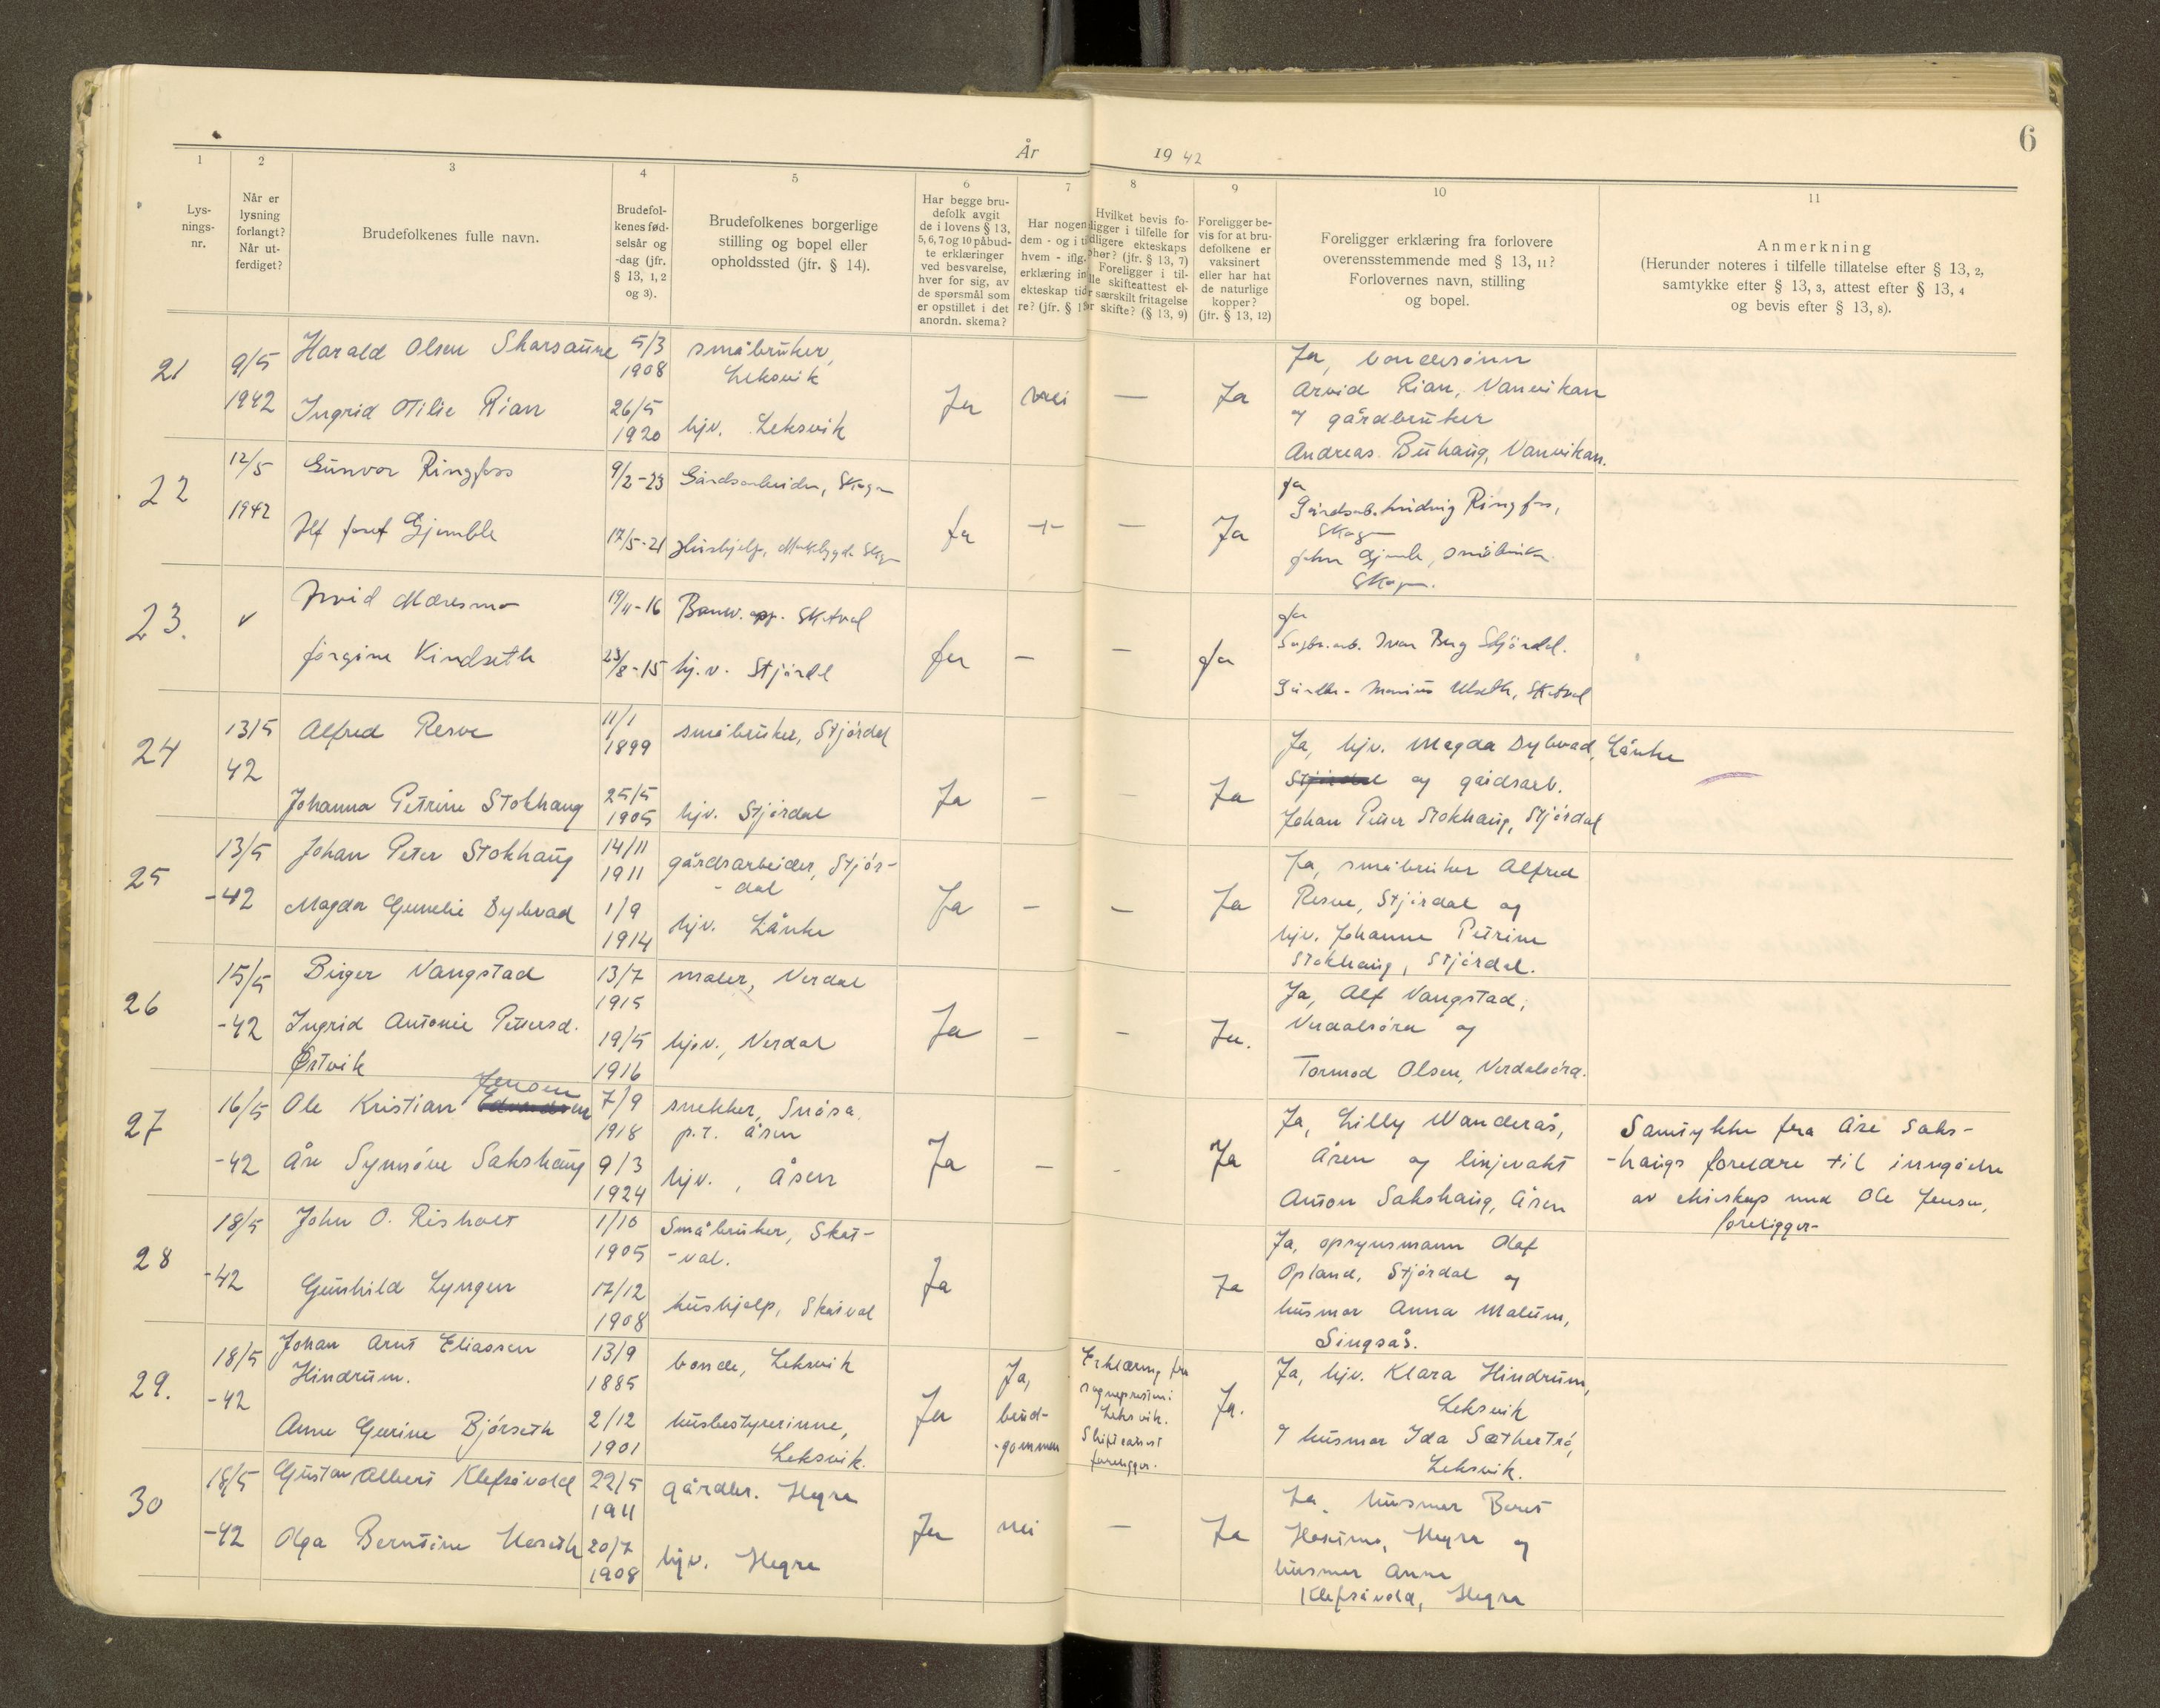 År 1942
6
1
2
3
4
5
6
7
8
9
10
11
Lys-
nings-
nr.
Når er
lysning
forlangt?
Når ut-
ferdiget?
Brudefolkenes fulle navn.
Brudefol-
kenes fød-
selsår og
-dag (jfr.
§ 13, 1, 2
og 3).
Brudefolkenes borgerlige
stilling og bopel eller
opholdssted (jfr. § 14).
Har begge bru-
defolk avgit
de i lovens § 13,
5, 6, 7 og 10 påbud-
te erklæringer
ved besvarelse,
hver for sig, av
de spørsmål som
er opstillet i det
anordn. skema?
Har nogen
dem - og i
hvem - iflg.
erklæring
ekteskap
re? (jfr. §
Hvilket bevis fo-
ligger i tilfelle for
ekteskaps
(jfr. § 13, 7)
Foreligger i til-
skifteattest el-
særskilt fritagelse
skifte? (§ 13, 9)
Foreligger be-
vis for at bru-
defolkene er
vaksinert
eller har hat
de naturlige
kopper?
(jfr. § 13, 12)
Foreligger erklæring fra forlovere
overensstemmende med § 13, 11?
Forlovernes navn, stilling
og bopel.
Anmerkning
(Herunder noteres i tilfelle tillatelse efter § 13, 2,
samtykke efter § 13, 3, attest efter § 13, 4
og bevis efter § 13, 8).
21
9/5
1942
Harald Olsen Skarsaune
Ingrid Otilie Rian
5/3
1908
26/5
1920
småbruker,
Leksvik
hjv. Leksvik
Ja
nei
—
Ja
Ja, bondesønn
Arvid Rian, Vanvikan
og gårdbruker
Andreas Buhaug, Vanvikan.
22
12/5
1942
Gunvor Ringfoss
Josef Gjemble
9/2-23
17/5-21
Gårdsarbeider,
Hushjelp,
Ja
—
Ja
Ja
Ringfoss,
Skogn
John
Skogn.
23.
Arvid Maresmo
Jørgine Kindseth
19/11-16
23/8-15
Skatval
hj.v. Stjørdal
Ja
—
—
Ja
Ja
Ivar Berg Stjørdal.
Marius Skatval
24
13/5
42
Alfred Resve
Johanna Petrine Stokhaug
11/1
1899
25/5
1905
småbruker, Stjørdal
hjv. Stjørdal
Ja
—
—
Ja
Ja, hjv. Magda Dybvad, Lånke
Stjørdal og gårdsarb.
Johan Peter Stokhaug, Stjørdal
25
13/5
-42
Johan Peter Stokhaug
Magda Gunelie Dybvad
14/11
1911
1/9
1914
gårdsarbeider, Stjør-
-dal
hjv. Lånke
Ja
—
—
Ja
Ja, småbruker Alfred
Resve, Stjørdal og
hjv. Johanne Petrine
Stokhaug, Stjørdal.
26
15/5
-42
Birger Vangstad
Ingrid Antonie Pettersd.
Østvik
13/7
1915
19/5
1916
maler, Verdal
hjv., Verdal
Ja
—
—
Ja.
Ja, Alf Vangstad,
Verdalsøra og
Tormod Olsen, Verdalsøra.
27
16/5
-42
Jensen
Ole Kristian
Åse Synnøve Sakshaug
7/9
1918
9/3
1924
snekker, Snåsa
p.t. Åsen
hjv., Åsen
Ja
—
-
Ja
Ja, Lilly Wanderås,
Åsen og linjevakt
Anton Sakshaug, Åsen
Samtykke fra Åse Saks-
-haugs foreldre til inngåelse
av ekteskap med Ole Jensen,
foreligger-
28
18/5
-42
John O. Risholt
Gunhild Lyngen
1/10
1905
17/12
1908
Småbruker, Skat-
-val.
hushjelp, Skatval
Ja
Ja
Ja, opsynsmann Olaf
Opland, Stjørdal og
husmor Anna Malum,
Singsås.
29.
18/5
-42
Johan Arnt Eliassen
Hindrum.
Anne Gurine Bjørseth
13/9
1885
2/12
1901
bonde, Leksvik
husbestyrerinne,
Leksvik.
Ja
Ja,
brud-
-gommen
Erklæring fra
sognepresten i
Leksvik.
Skifteattest
foreligger.
Ja.
Ja, hjv. Klara Hindrum,
Leksvik
og husmor Ida Sæthertrø,
Leksvik.
30
18/5
-42
Gustav Albert Klefsåvold
Olga Berntine
22/5
1911
20/7
1908
gårdbr. Hegra
hjv. Hegra
Ja
nei
—
Ja
Ja, husmor Beret
Hegra og
husmor Anna
Klefsåvold, Hegra